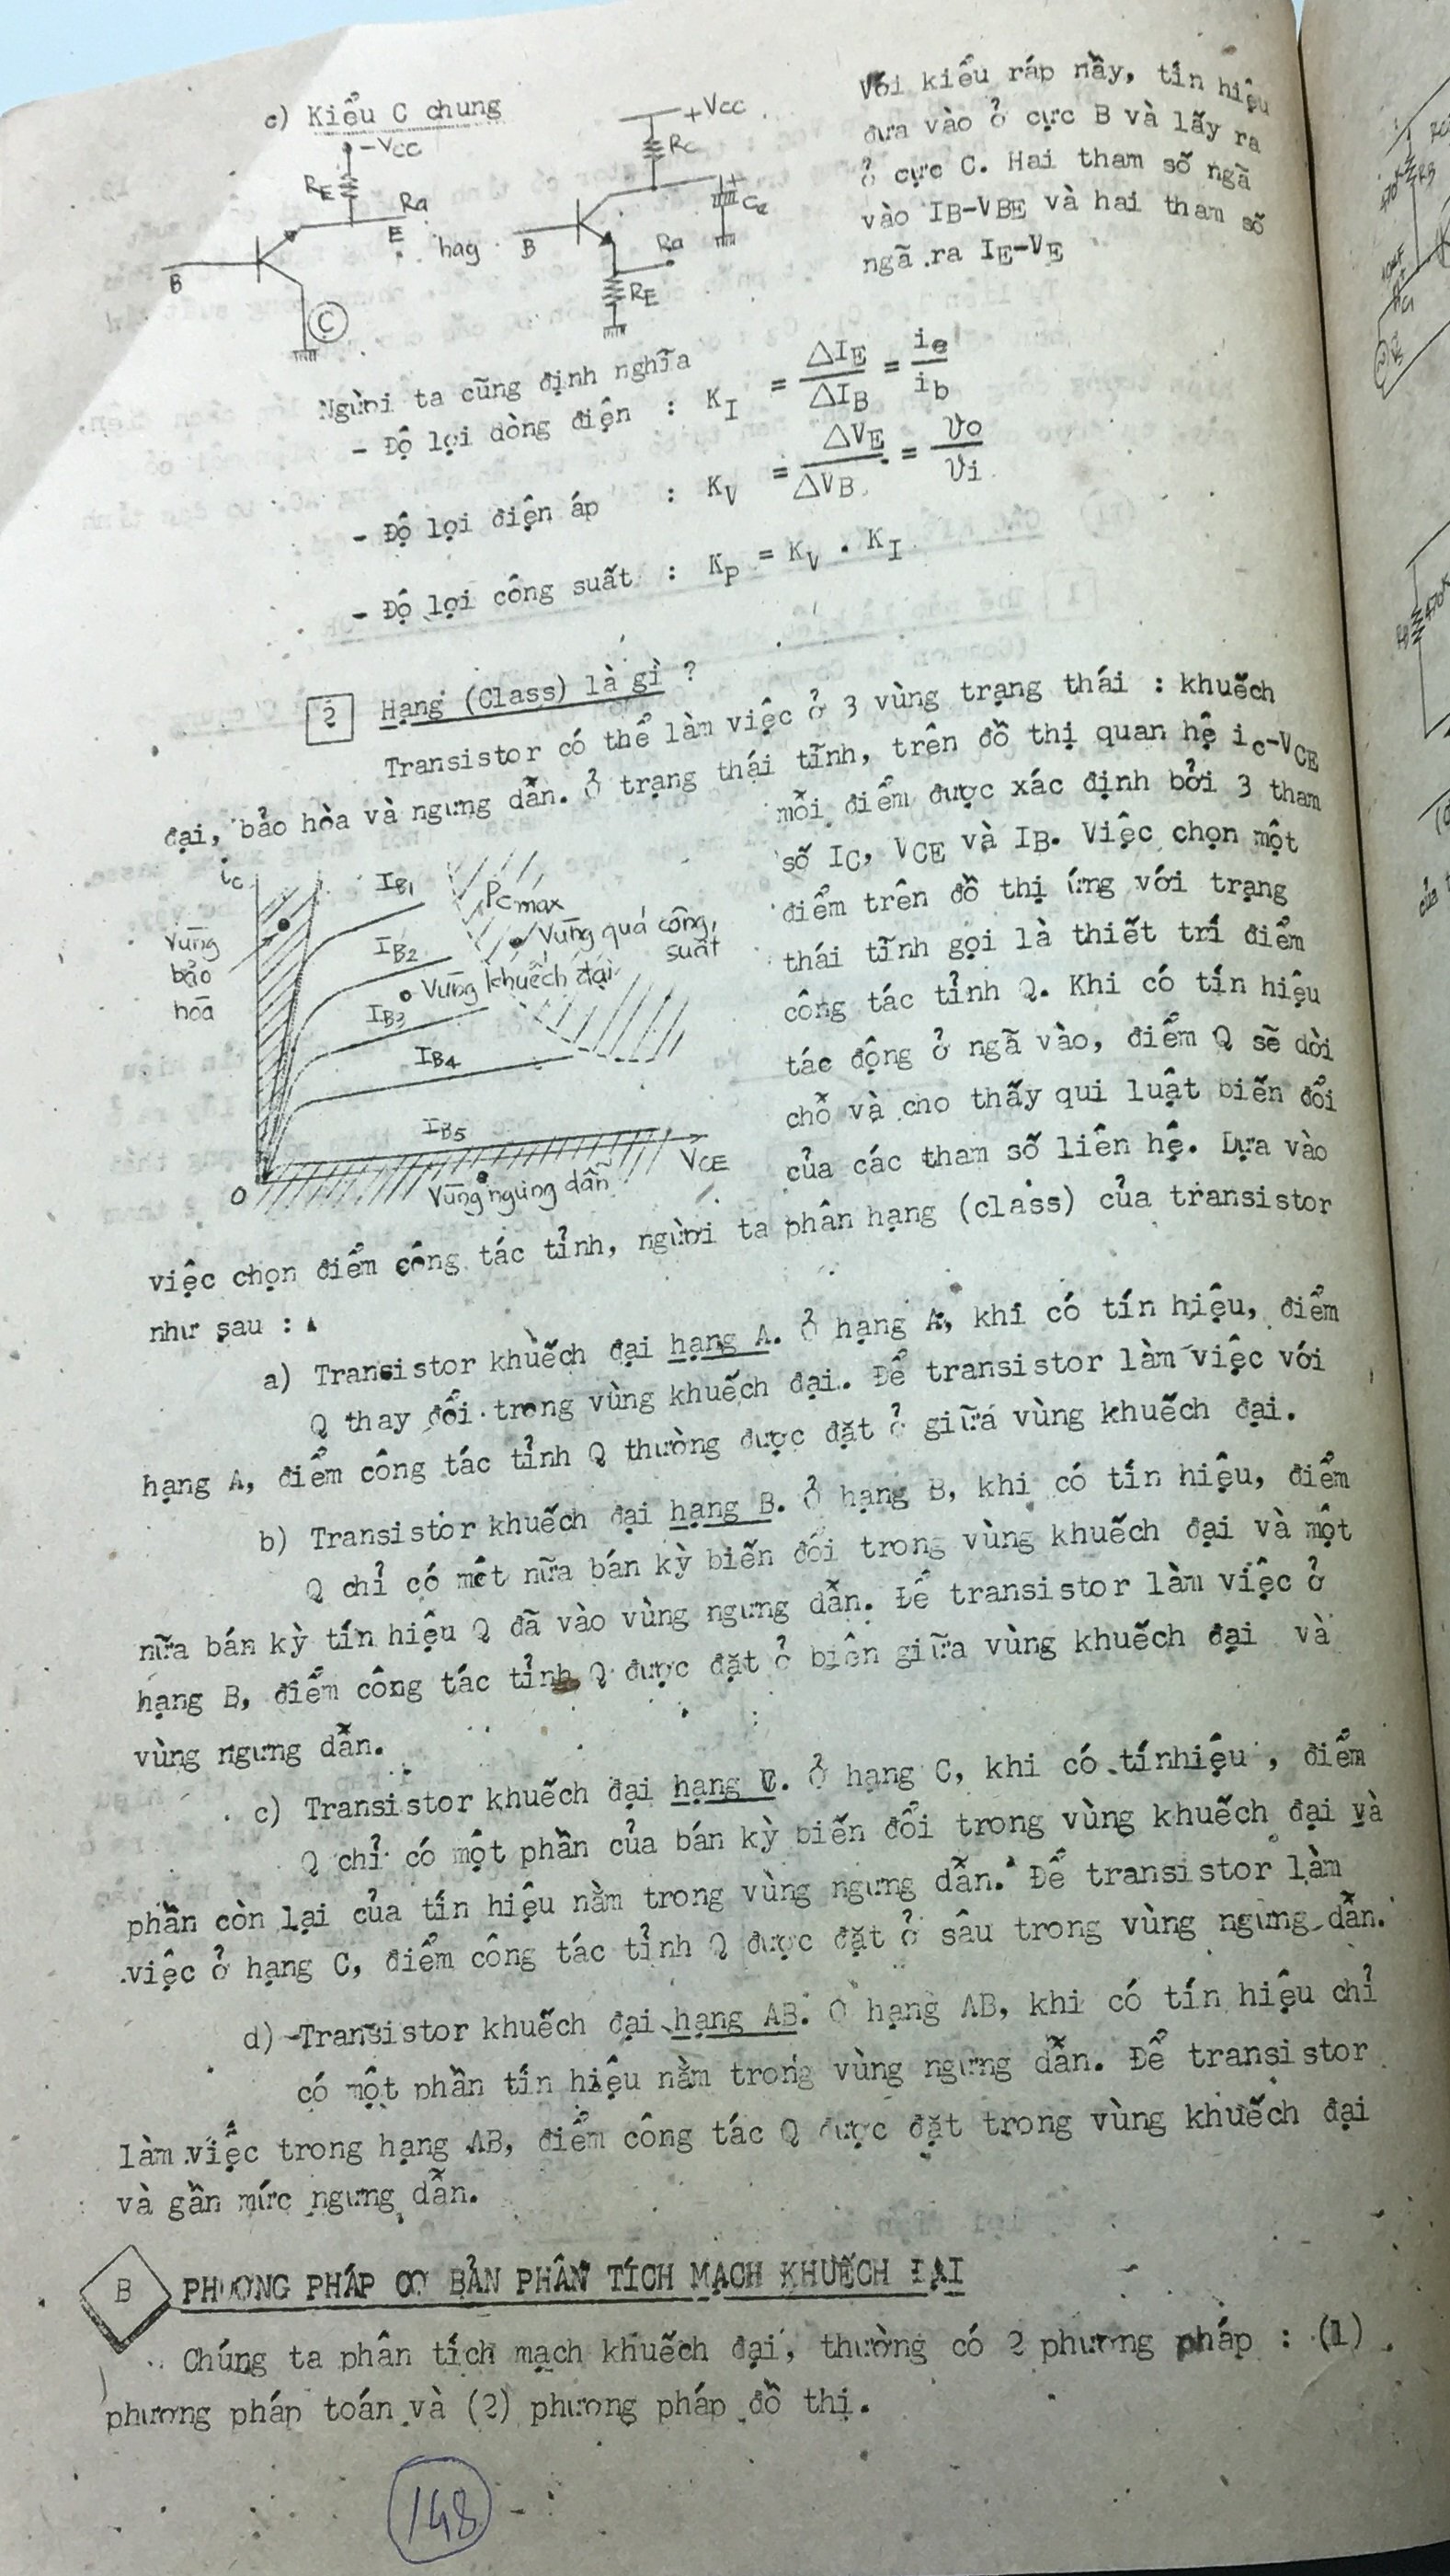 c) Kiểu C chung
-VCC
RE
Ra
E
B
C
hay
+VCC
RC
B
Ra
RE
Với kiểu ráp nầy, tín hiệu
đưa vào ở cực B và lấy ra
ở cực C. Hai tham số ngã
vào IB-VBE và hai tham số
ngã ra IE-VE
Người ta cũng định nghĩa
- Độ lợi dòng điện : KI = ΔIE/ΔIB = ie/ib
- Độ lợi điện áp : KV = ΔVE/ΔVB = vo/vi
- Độ lợi công suất : KP = KV . KI
2 Hạng (Class) là gì ?
Transistor có thể làm việc ở 3 vùng trạng thái : khuếch
đại, bảo hòa và ngưng dẫn. Ở trạng thái tĩnh, trên đồ thị quan hệ ic-VCE
mỗi điểm được xác định bởi 3 tham
số IC, VCE và IB. Việc chọn một
điểm trên đồ thị ứng với trạng
thái tĩnh gọi là thiết trí điểm
công tác tỉnh Q. Khi có tín hiệu
tác động ở ngã vào, điểm Q sẽ dời
chỗ và cho thấy qui luật biến đổi
của các tham số liên hệ. Dựa vào
ic
Vùng
bảo
hòa
IB1
IB2
IB3
IB4
IB5
PCmax
Vùng quá công
suất
Vùng khuếch đại
VCE
O
Vùng ngưng dẫn
việc chọn điểm công tác tỉnh, người ta phân hạng (class) của transistor
như sau :
a) Transistor khuếch đại hạng A. Ở hạng A, khi có tín hiệu, điểm
Q thay đổi trong vùng khuếch đại. Để transistor làm việc với
hạng A, điểm công tác tỉnh Q thường được đặt ở giữa vùng khuếch đại.
b) Transistor khuếch đại hạng B. Ở hạng B, khi có tín hiệu, điểm
Q chỉ có một nữa bán kỳ biến đổi trong vùng khuếch đại và một
nữa bán kỳ tín hiệu Q đã vào vùng ngưng dẫn. Để transistor làm việc ở
hạng B, điểm công tác tỉnh Q được đặt ở biên giữa vùng khuếch đại và
vùng ngưng dẫn.
c) Transistor khuếch đại hạng C. Ở hạng C, khi có tínhiệu , điểm
Q chỉ có một phần của bán kỳ biến đổi trong vùng khuếch đại và
phần còn lại của tín hiệu nằm trong vùng ngưng dẫn. Để transistor làm
việc ở hạng C, điểm công tác tỉnh Q được đặt ở sâu trong vùng ngưng dẫn.
d) Transistor khuếch đại hạng AB. Ở hạng AB, khi có tín hiệu chỉ
có một phần tín hiệu nằm trong vùng ngưng dẫn. Để transistor
làm việc trong hạng AB, điểm công tác Q được đặt trong vùng khuếch đại
và gần mức ngưng dẫn.
B PHƯƠNG PHÁP CƠ BẢN PHÂN TÍCH MẠCH KHUẾCH ĐẠI
Chúng ta phân tích mạch khuếch đại, thường có 2 phương pháp : (1)
phương pháp toán và (2) phương pháp đồ thị.
148